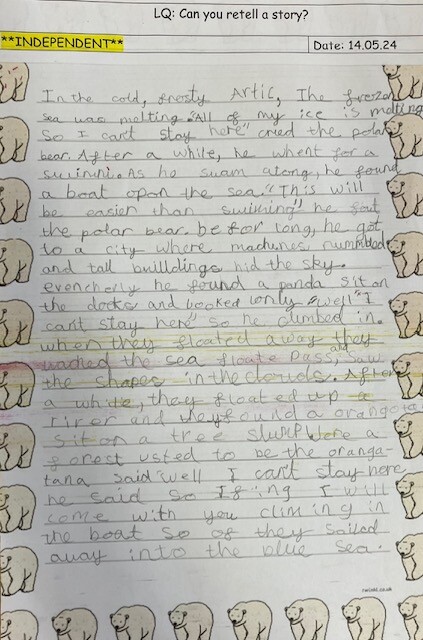 LQ: Can you retell a story?
**INDEPENDENT**
Date: 14.05.24
In the cold, frosty Artic, The frezon
sea was melting. "All of my ice is melting
So I cant stay here" cried the polar
bear. After a while, he whent for a
As he swam along, he found
a boat opon the sea. "This will
be easier than swiming" he
the polar bear. be for long, he got
to a city where machines rumbled
and tall builldings hid the sky.
evencherly he found a panda sit on
the docks and looked lonly "well "I
cant stay here" so he climbed in.
when they floated away they
wached the sea floate pass, saw
the shapes in the clouds. After
a while, they floated up a
river and they found a orangota
sit on a tree stump were a
forest usted to be the oranga-
tana said well I can't stay here
he said so I I will
come with you climing in
the boat so of they sailed
away into the blue sea.
twinkl.co.uk